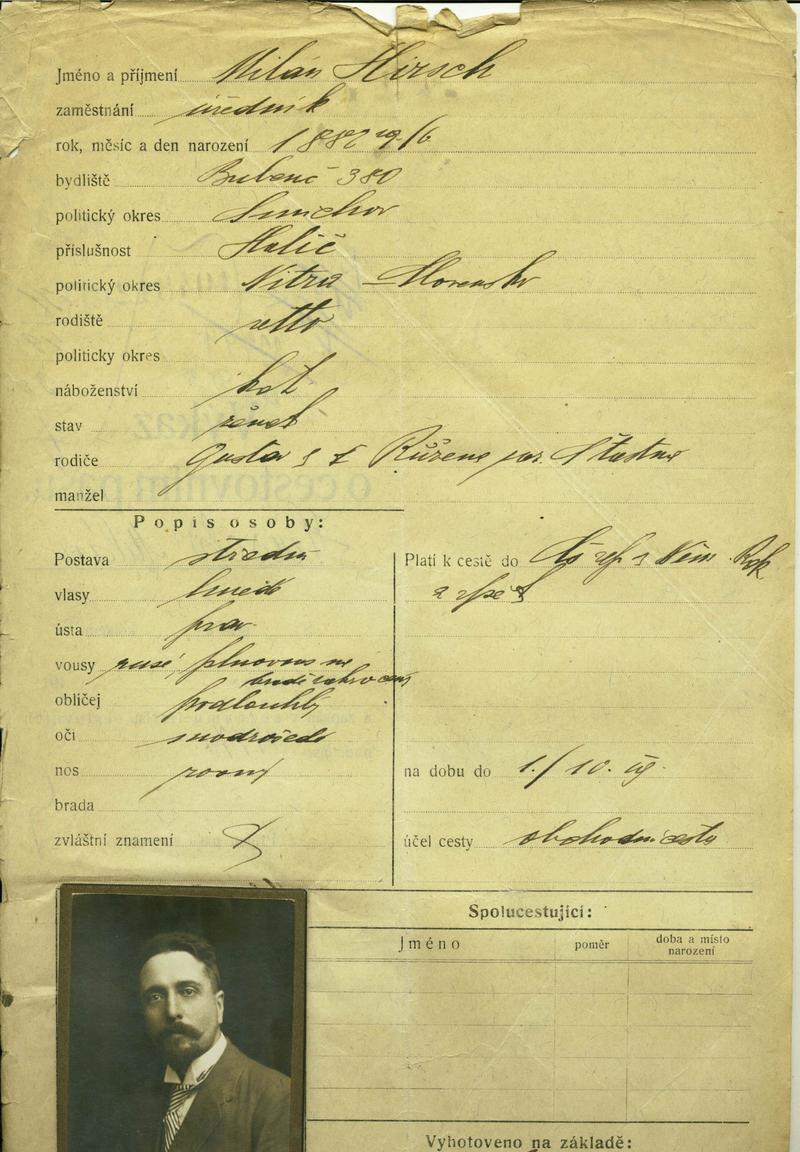 Jméno a příjmení Milan Hirsch
zaměstnání úředník
rok, měsíc a den narození 1882 19/6
bydliště Bubeneč 380
politický okres Smíchov
příslušnost Holíč
politický okres Nitra – Slovensko
rodiště detto
politicky okres
náboženství kat
stav ženat
rodiče Gustav Růžena roz. Šťastná
manžel
Popis osoby:
Postava střední
Platí k cestě do Něm. Rak
vlasy hnědé
a zpět
ústa prav.
vousy rusé, plnovous
obličej podlouhlý
oči modrošedé
nos rovný
na dobu do 1./10.
brada
zvláštní znamení
účel cesty obchodní cesty
Spolucestující:
Jméno poměr doba a místo
narození
Vyhotoveno na základě: